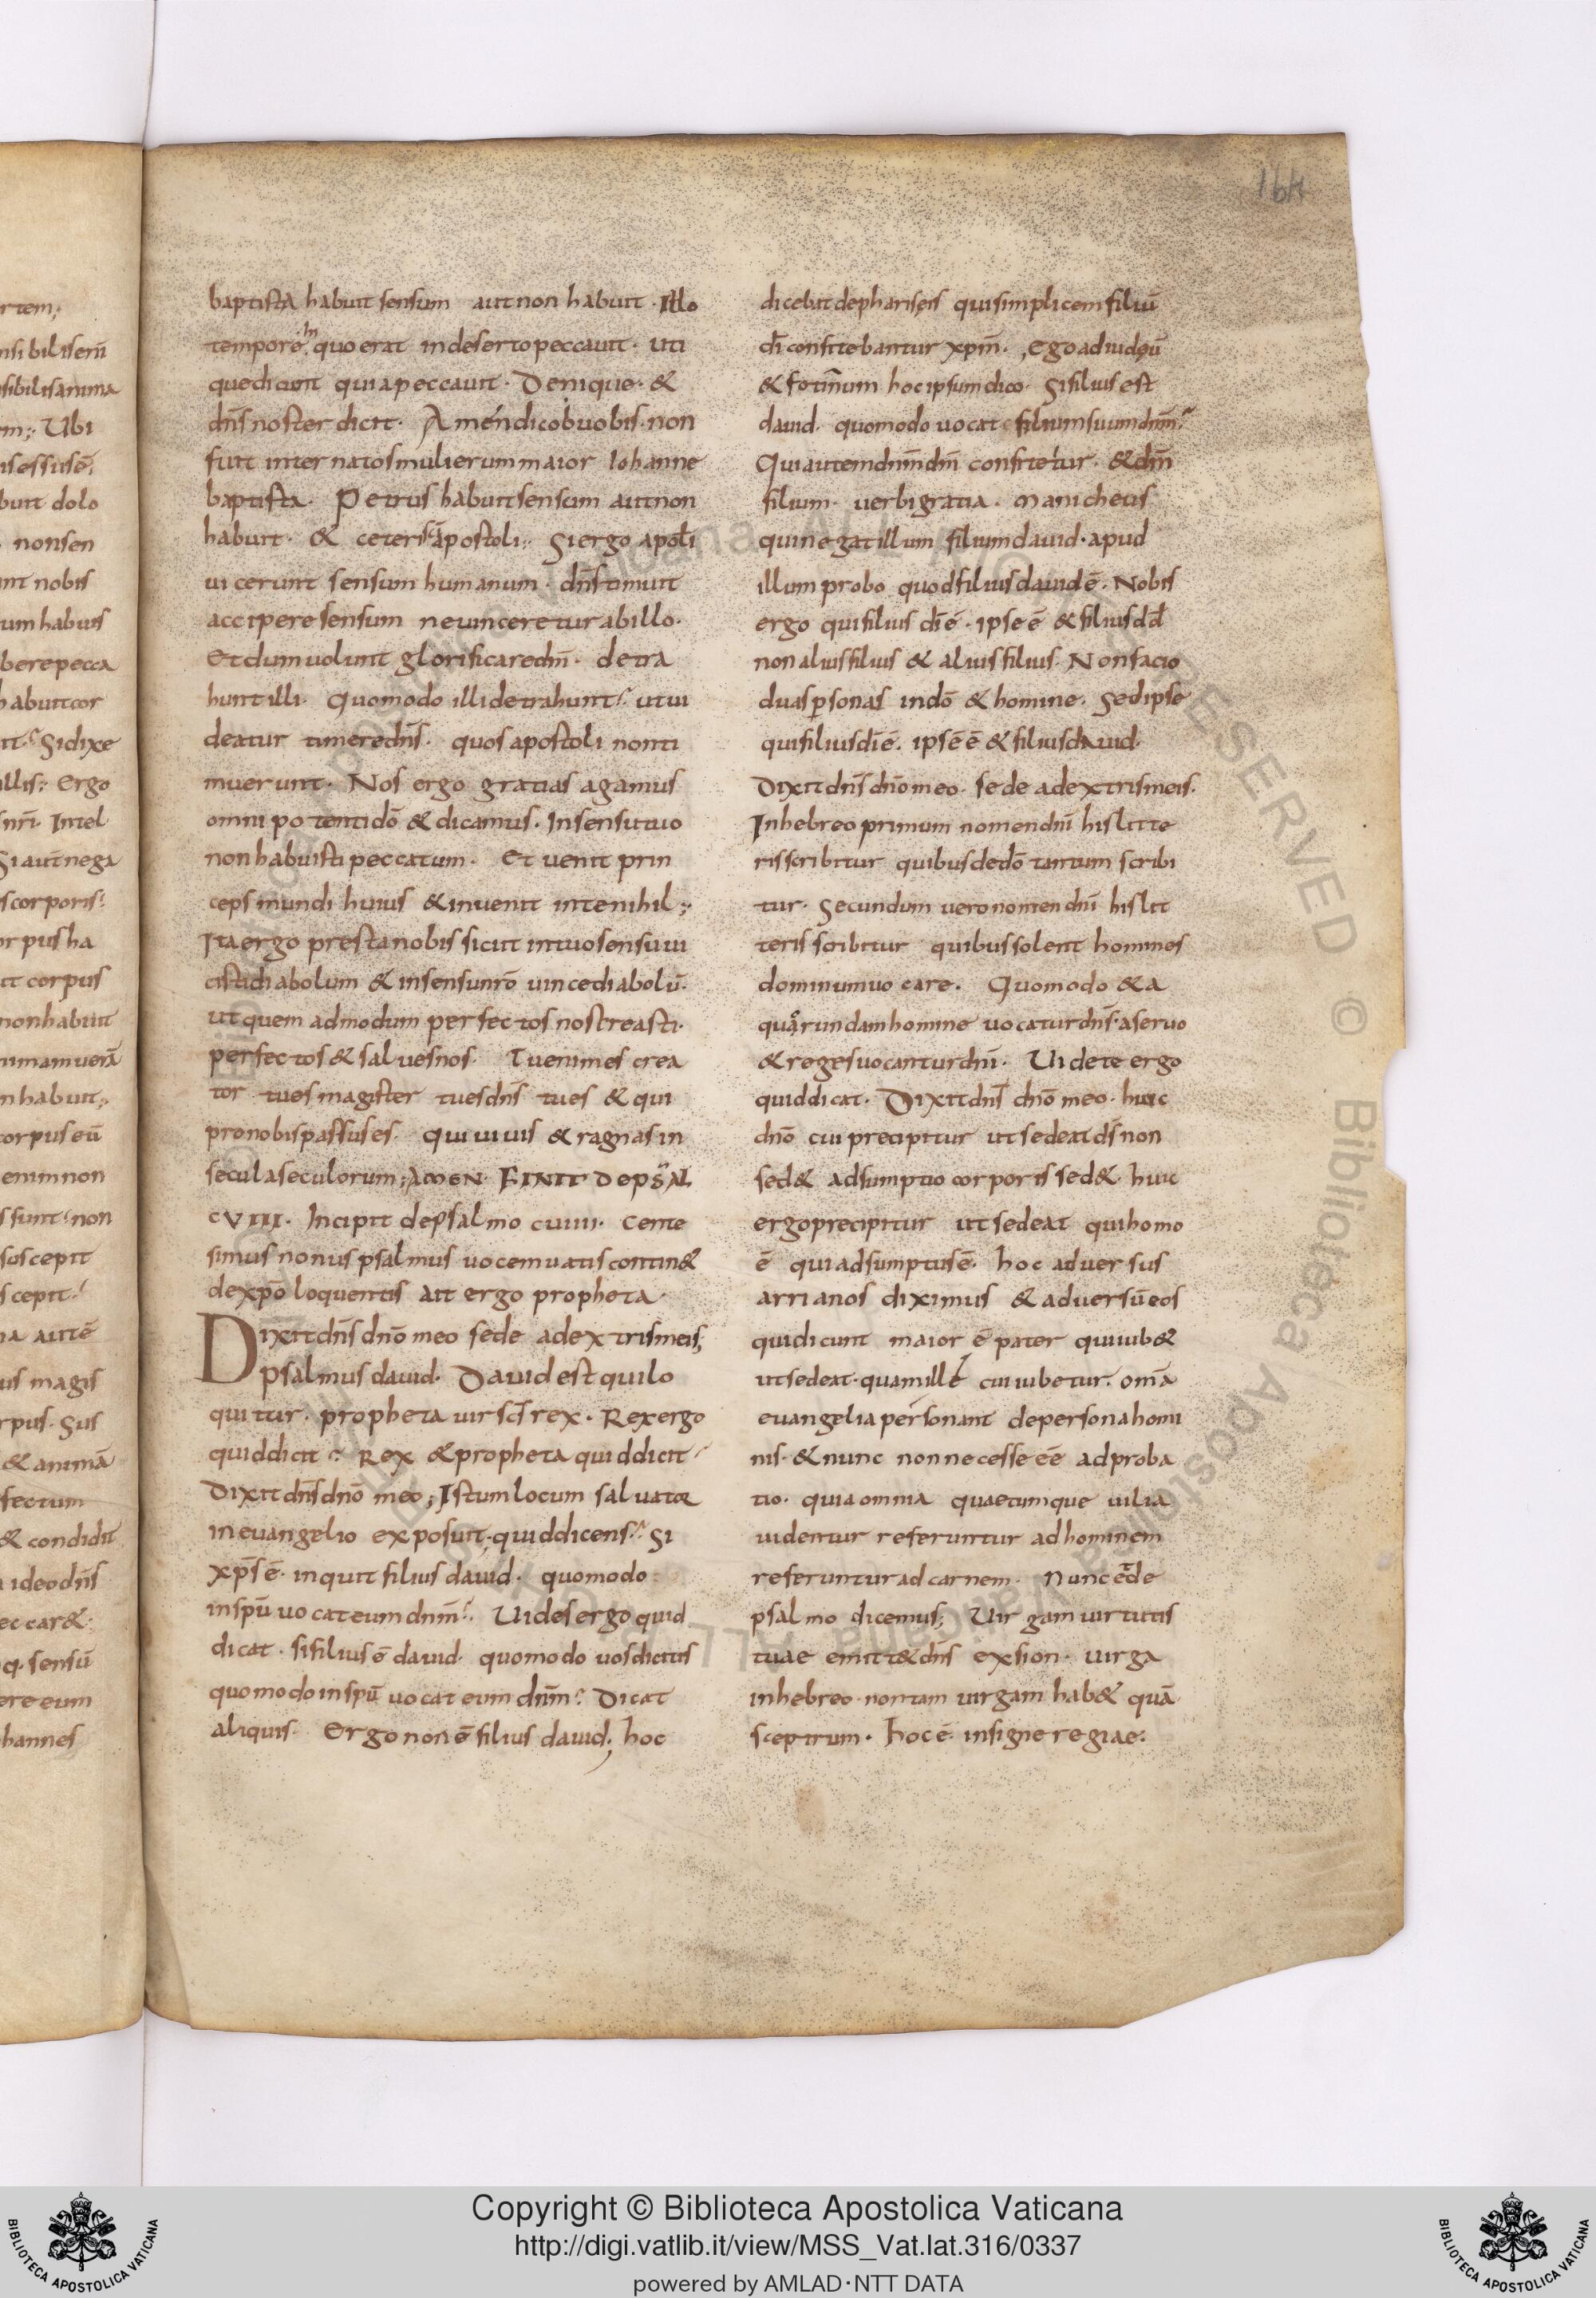 164
rtem;
nsibilisem̄
sibilisanima
m;. Ubi
isessusē;
bunt dolo
nonsen
nt nobis
um habuis
bere pecca
habuit cor
Sidixe
illis;. Ergo
nr̄i. Intel
Si aut̄ nega
scorporis
orpus ha
it corpus
non habuit
nimam uerā
n habuit;.
corpus eū
enim non
s sunt non
suscepit
scepit
na autē
us magis
rpus. Sus
& animā
fectum
& condidit
ideo dn̄s
ec car&
q. sensū
ere eum
hannes
baptista habuit sensum aut non habuit. Illo
tempore In quo erat in deserto peccauit. uti
que dicunt quia peccauit. Denique. &
dn̄s noster dicit. Amen dico uobis. non
fuit inter natos mulierum maior Iohanne
baptista. Petrus habuit sensum aut non
habuit. & ceteri apostoli;. Si ergo apostł
uicerunt sensum humanum. dn̄s timuit
accipere sensum ne uinceretur ab illo.
Et dum uolunt glorificare dn̄m. detra
hunt illi. Quomodo illi detrahunt? ut ui
deatur timere dn̄s. quos apostoli non ti
muerunt. Nos ergo gratias agamus
omnipotenti dō & dicamus. In sensu tuo
non habuisti peccatum. Et uenit prin
ceps mundi huius & inuenit in te nihil;.
Ita ergo presta nobis sicut in tuo sensu ui
cisti diabolum & in sensu nr̄o uince diabolū.
ut quem admodum perfectos nos creasti.
perfectos & salues nos. Tu enim es crea
tor tu es magister tu es dn̄s tu es & qui
pro nobis passus es. qui uiuis & ragnas in
secula seculorum; AMEN. FINIT DE PSAL
CVIII. Incipit de psalmo cuiiii. Cente
simus nonus psalmus uocem uatis contin&
de xp̄o loquentis ait ergo propheta.
Dixit dn̄s dn̄o meo sede a dextris meis;
psalmus dauid. Dauid est qui lo
quitur. propheta uir sc̄s rex. Rex ergo
quid dicit? Rex & propheta quid dicit?
Dixit dn̄s dn̄o meo; Istum locum saluator
in euangelio exposuit. quid dicens? Si
xp̄s ē. inquit filius dauid. quomodo
in sp̄u uocat eum dn̄m? Uides ergo quid
dicat. si filius ē dauid. quomodo uos dicitis
quomodo in sp̄u uocat eum dn̄m? Dicat
aliquis. Ergo non ē filius dauid; hoc
dicebat de phariseis qui simplicem filiū
dī confitebantur xp̄m. Ego ad iudęū
& fotinum hoc ipsum dico. Si filius est
dauid. quomodo uocat filium suum dn̄m?
Qui autem dn̄m dm̄ confitetur. & dm̄
filium. uerbi gratia. manicheus
qui negat illum filium dauid. apud
illum probo quod filius dauid ē. Nobis
ergo qui filius dī ē. ipse ē & filius dd̄
non alius filius & alius filius. Non facio
duas p̱sonas in dō & homine. Sed ipse
qui filius dī ē. ipse ē & filius dauid.
Dixit dn̄s dn̄o meo. sede a dextris meis.
In hebreo primum nomen dn̄i his litte
ris scribitur quibus de dō tantum scribi
tur. Secundum uero nomen dn̄i his lit
teris scribitur quibus solent homines
dominum uocare. Quomodo & a
quorundam homine uocatur dn̄s. a seruo
& reges uocantur dn̄i. Uidete ergo
quid dicat. Dixit dn̄s dn̄o meo. huic
dn̄o cui precipitur ut sedeat ds̄ non
sed& adsumptio corporis sed&. huic
ergo precipitur ut sedeat qui homo
ē qui adsumptus ē. hoc aduersus
arrianos diximus & aduersū eos
qui dicunt maior ē pater qui iub&
ut sedeat. quam ille cui iubetur. om̄a
euangelia personant de persona homi
nis. & nunc non necesse eē adproba
tio. quia omnia quaecumque uilia
uidentur referuntur ad hominem
referuntur ad carnem. Nunc de
psalmo dicemus; Uirgam uirtutis
tuae emitt& dn̄s ex sion. uirga
in hebreo. non tam uirgam hab& quā
sceptrum. hoc ē. insigne regiae.
Copyright © Biblioteca Apostolica Vaticana
http://digi.vatlib.it/view/MSS_Vat.lat.316/0337
powered by AMLAD·NTT DATA
BIBLIOTECA APOSTOLICA VATICANA
BIBLIOTECA APOSTOLICA VATICANA